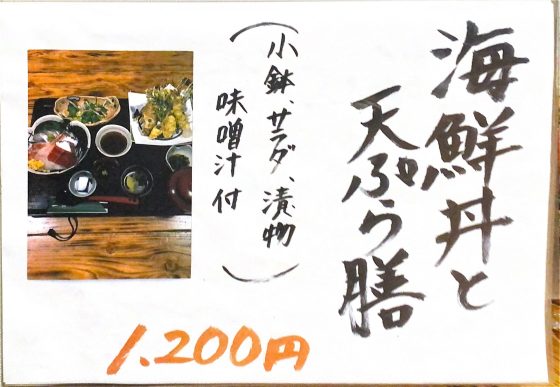 海鮮丼と
天ぷら膳
(小鉢、サラダ、漬物
味噌汁付)
1.200円